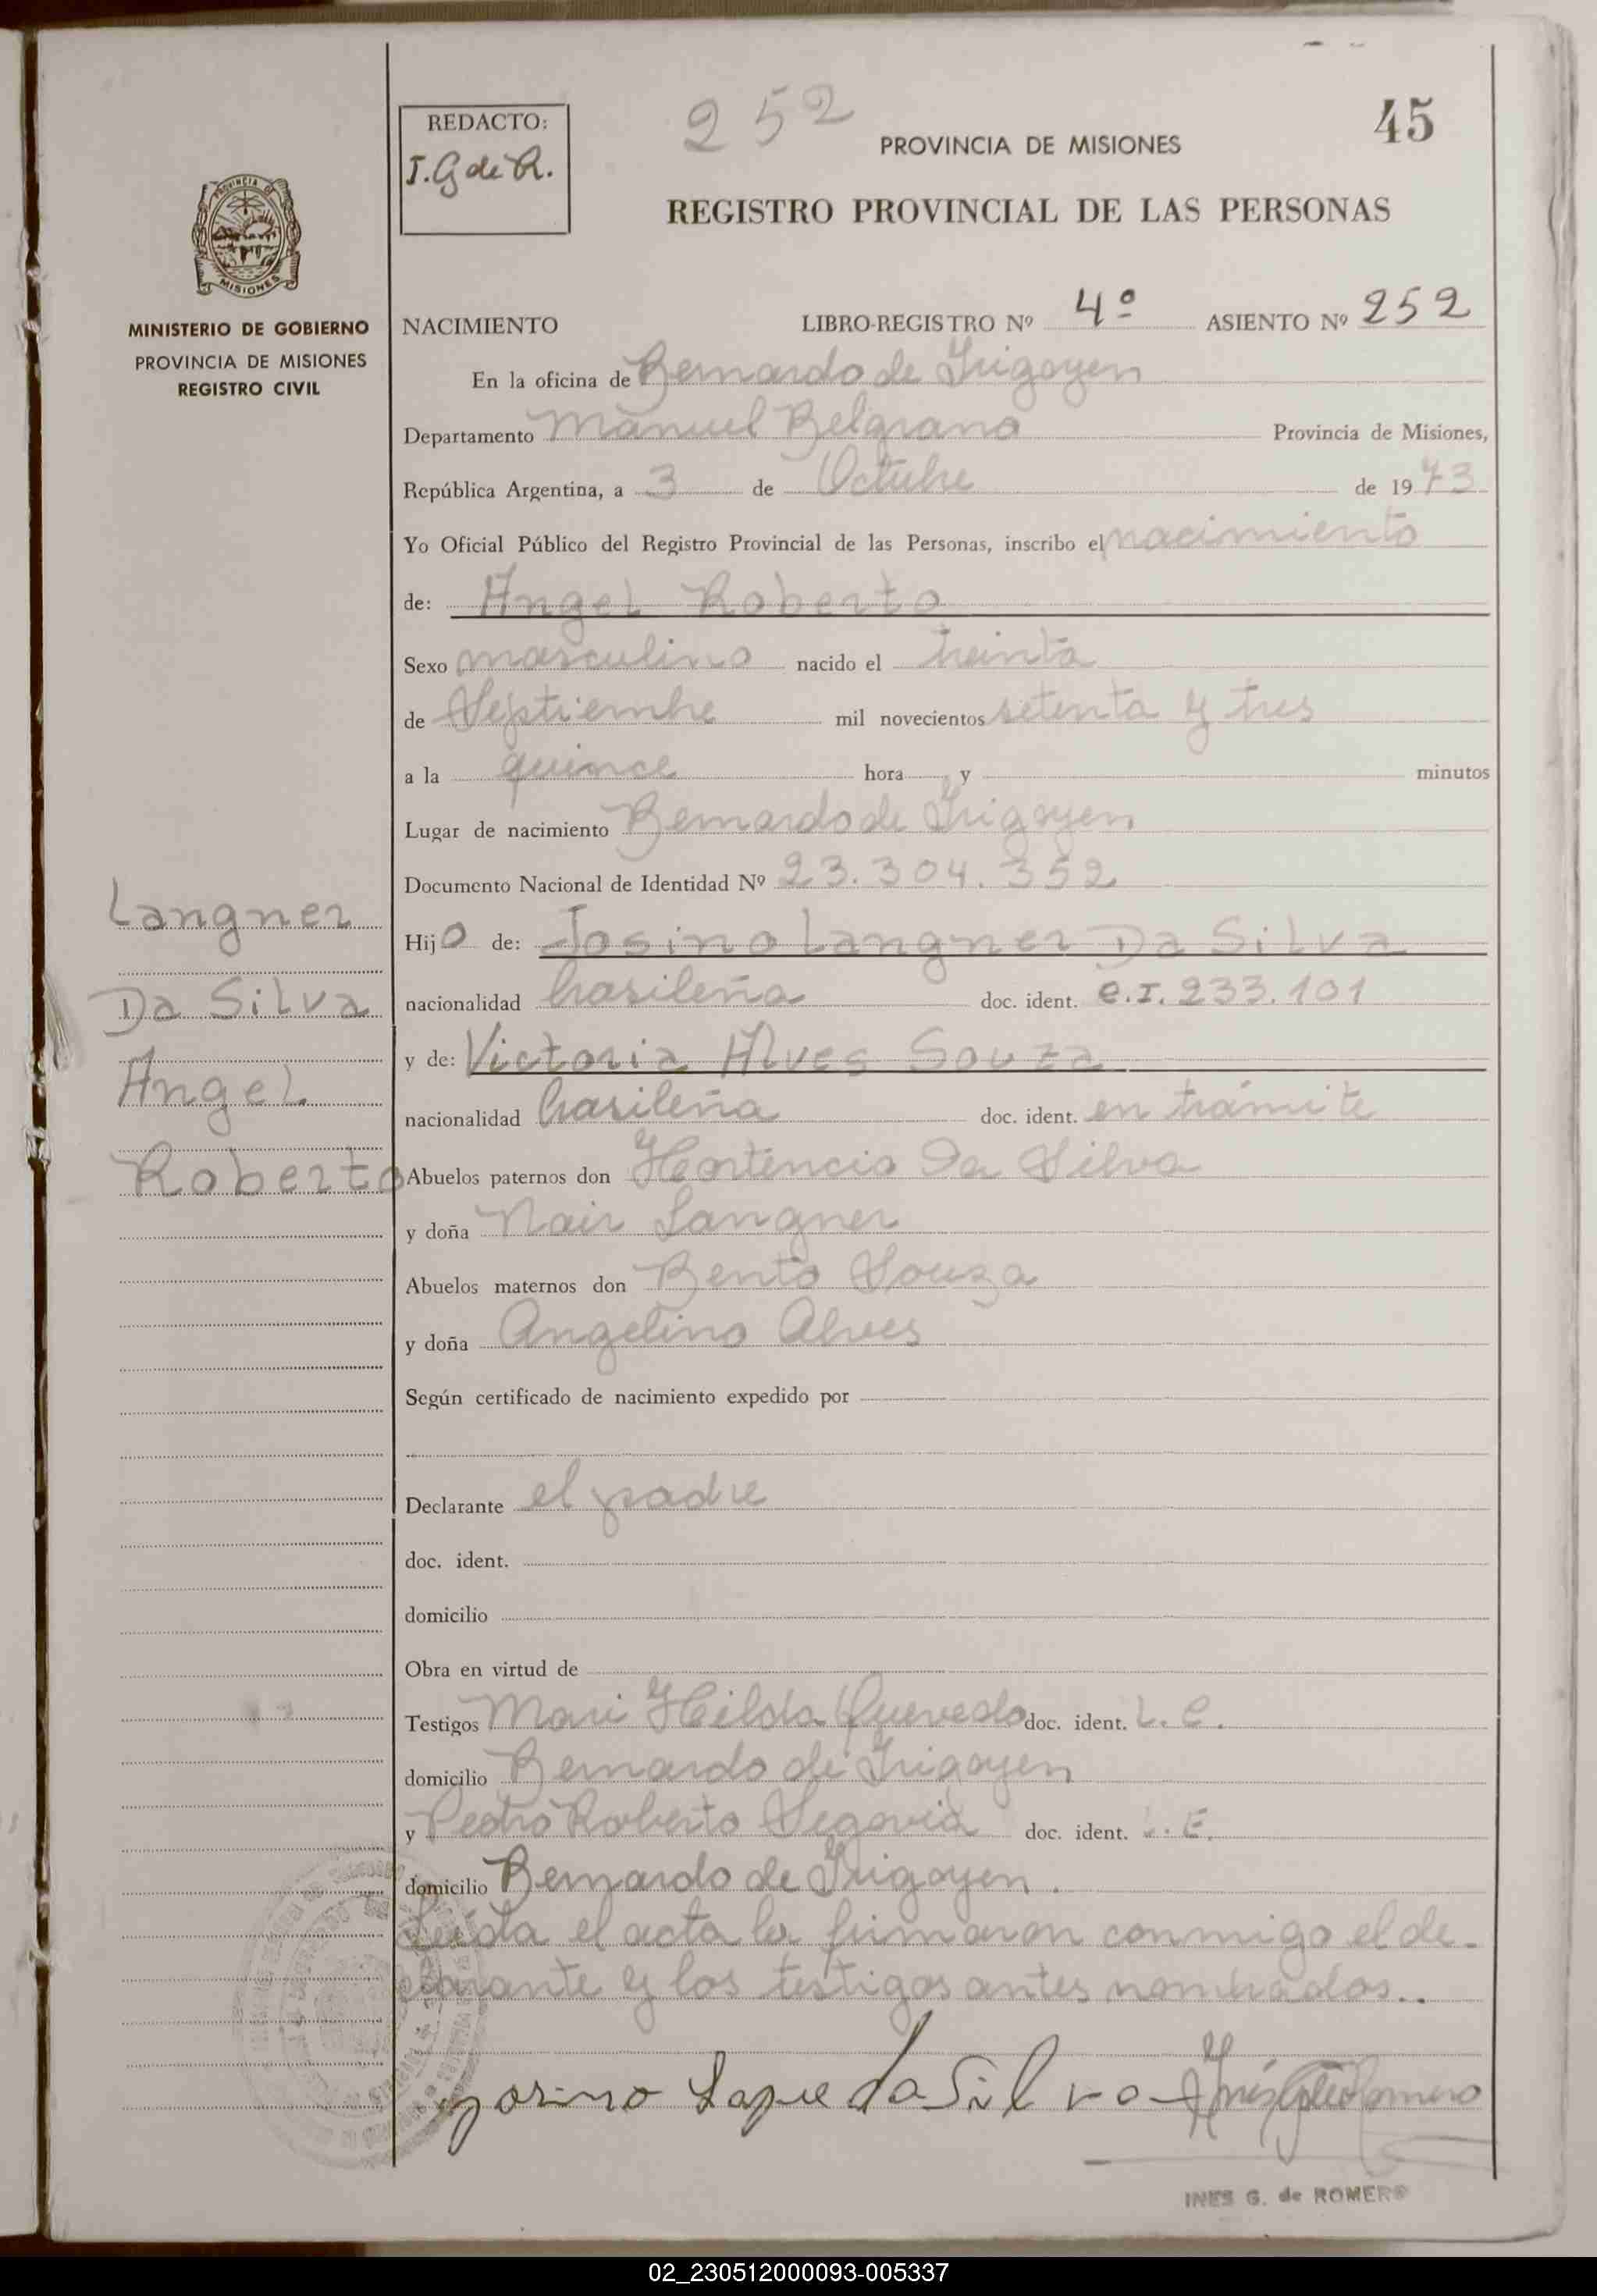 REDACTO:
I. G de R.
252
PROVINCIA DE MISIONES
45
REGISTRO PROVINCIAL DE LAS PERSONAS
PROVINCIA DE
MISIONES
MINISTERIO DE GOBIERNO
PROVINCIA DE MISIONES
REGISTRO CIVIL
NACIMIENTO LIBRO-REGISTRO Nº 4º ASIENTO Nº 252
En la oficina de Bernardo de Irigoyen
Departamento Manuel Belgrano Provincia de Misiones,
República Argentina, a 3 de Octubre de 1973
Yo Oficial Público del Registro Provincial de las Personas, inscribo el nacimiento
de: Angel Roberto
Sexo masculino nacido el treinta
de Septiembre mil novecientos setenta y tres
a la quince hora y minutos
Lugar de nacimiento Bernardo de Irigoyen
Documento Nacional de Identidad Nº 23.304.352
Langner
Da Silva
Angel
Roberto
Hijo de: Josino Langner Da Silva
nacionalidad brasileña doc. ident. C.I. 233.101
y de: Victoria Alves Souza
nacionalidad brasileña doc. ident. en trámite
Abuelos paternos don Hortencio Da Silva
y doña Nair Langner
Abuelos maternos don Bento Souza
y doña Angelino Alves
Según certificado de nacimiento expedido por
Declarante el padre
doc. ident.
domicilio
Obra en virtud de
Testigos Mari Hilda Quevedo doc. ident. L. C.
domicilio Bernardo de Irigoyen
y Pedro Roberto Segovia doc. ident. L. E.
domicilio Bernardo de Irigoyen.
Leída el acta la firmaron conmigo el de-
clarante y los testigos antes nombrados..
da Silva
INES G. de ROMERO
02_230512000093-005337